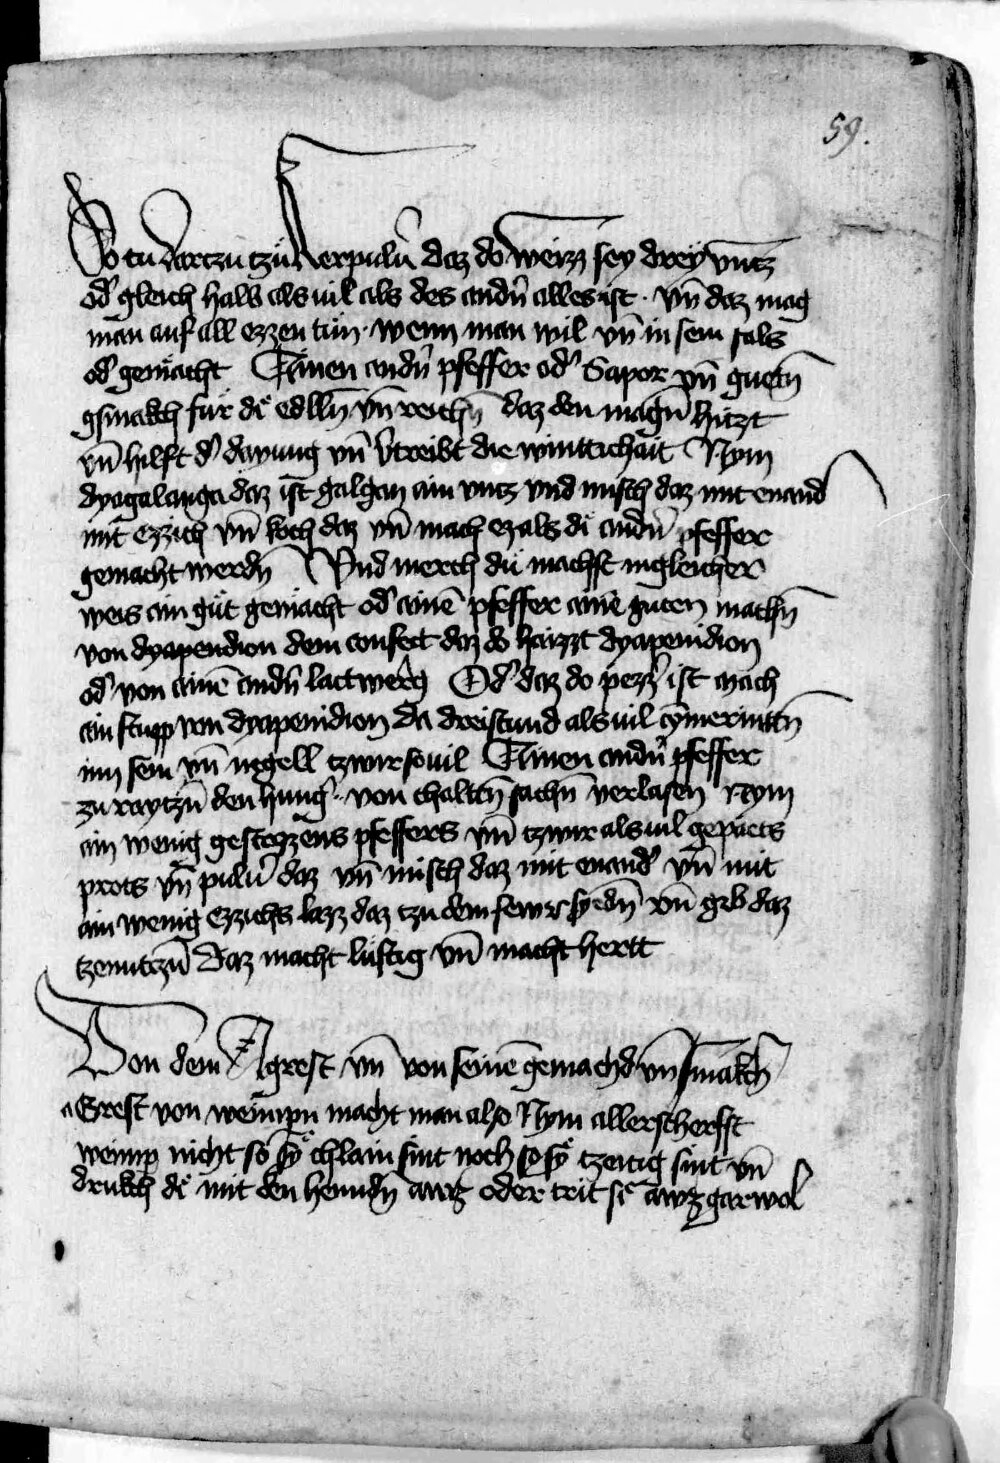 59.
So tu dartzu tzukerpulu̅ daz do weizz sey drey vntz
od̕ gleich halb als uil als des andn̅ alles ist · vn̅ daz mag
man auf all ezzen tün · wenn man wil vn̅ in sem sals
od̕ gemacht Ainen andn̅ pfeffer od̕ Sapor vn̅ guetn̅
gsmakch für di edlln̅ vn̅ reichn̅ daz den magn̅ hitzt
vn̅ hilft d̕ dayung vn̅ v̕treibt die winttichait Nym
dyagalanga daz ist galgan ain vntz vnd misch daz mit enand̕
mit ezzich vn̅ koch daz vn̅ mach ez als di andn̅ pfeffer
gemacht werdn̅ Vnd merch dü machst ingleicher
weis ain güt gemächt od̕ aine̅ pfeffer aine̅ guten machn̅
von dyapendion dem confect daz do haizzt dyapenidion
od̕ von aine̅ andn̅ lactwerg Od̕ daz do pezz̕ ist mach
ain stupp von dyapenidion da dreistund als uil cymerintn̅
inn sem vn̅ negell tzwir so uil Ainen andn̅ pfeffer
zu raytzn̅ den hung̕ · von chaltn̅ sachn̅ verlasen Nym
ain wenig gestozzens pfeffers vn̅ tzwir als uil gepaets
prots vn̅ pulu̕ daz vn̅ misch daz mit enand̕ vn̅ mit
ain wenig ezzichs lazz daz tzu dem fewr sye̅dn̅ vn̅ geb daz
tzenutzn̅ Daz macht lustig vn̅ macht hertt
Von dem Agrest vn̅ von seine̅ gemachd vn̅ smakch
aGrest von weinnpn macht man also Nym allerscherfst
weinnp nicht so sy chlain sint noch so sy tzeitig sint vn̅
drukch di mit den henndn̅ awz oder trit si awz gar wol